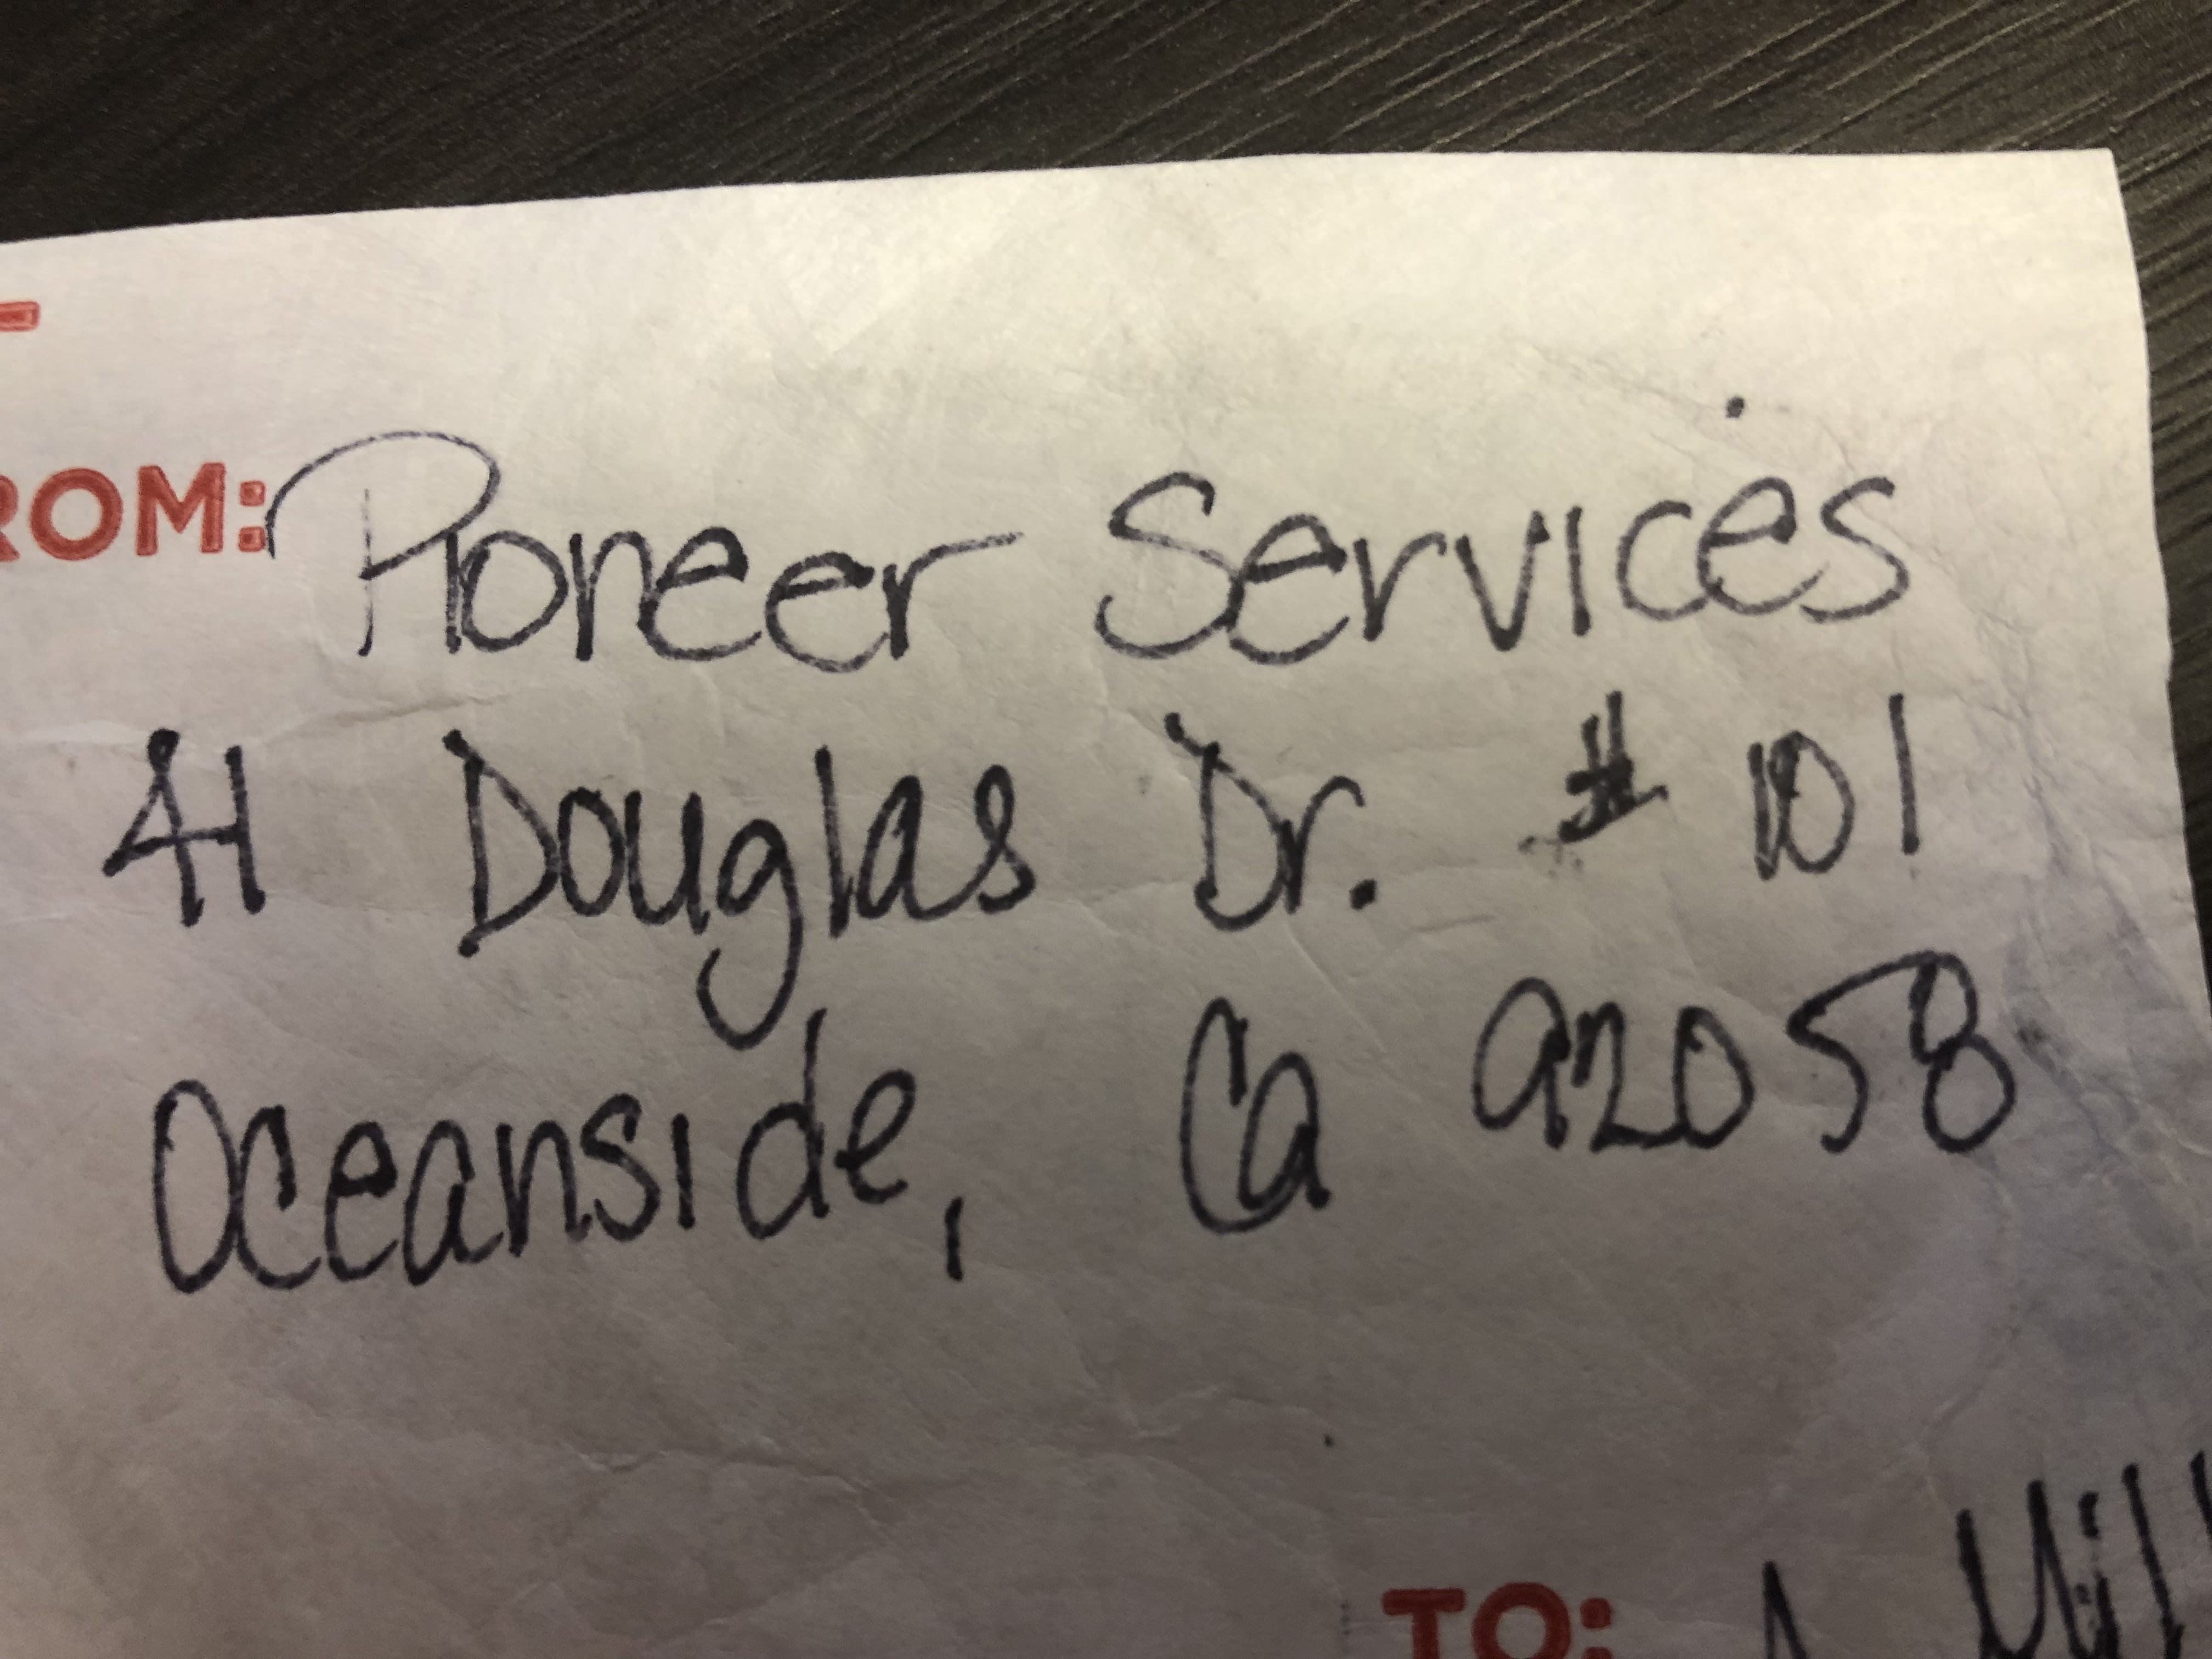 FROM: Pioneer Services
41 Douglas Dr. # 101
Oceanside, Ca 92058
TO: